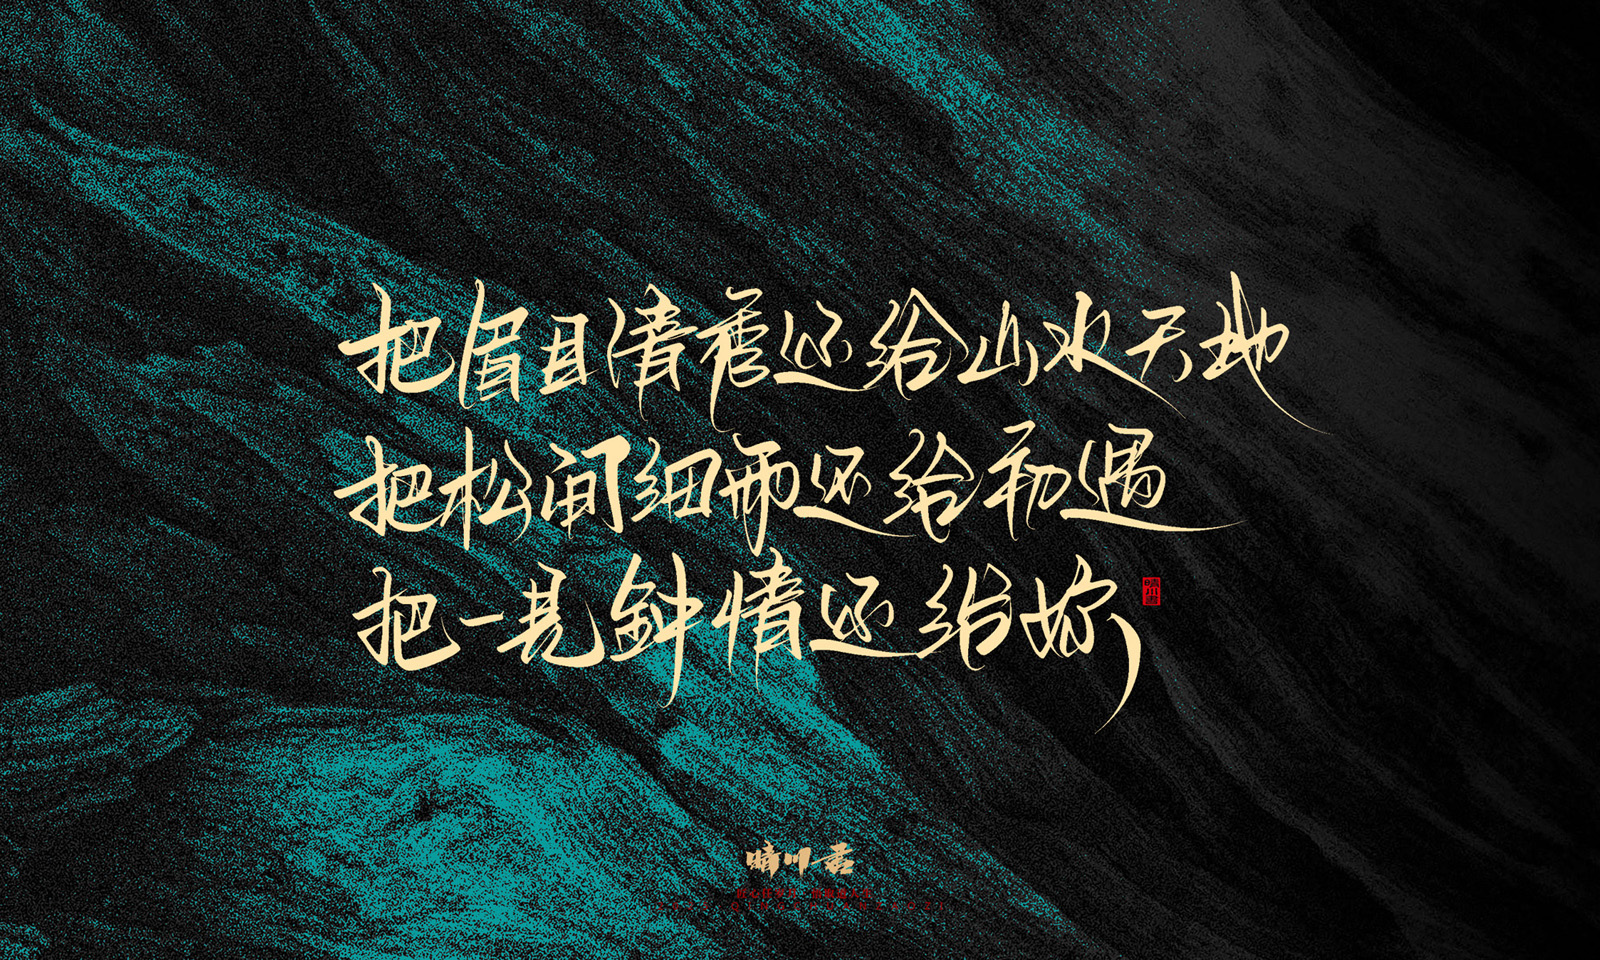 把眉目清秀还给山水天地
把松间细雨还给初遇
把一见钟情还给你
晴川
晴川书